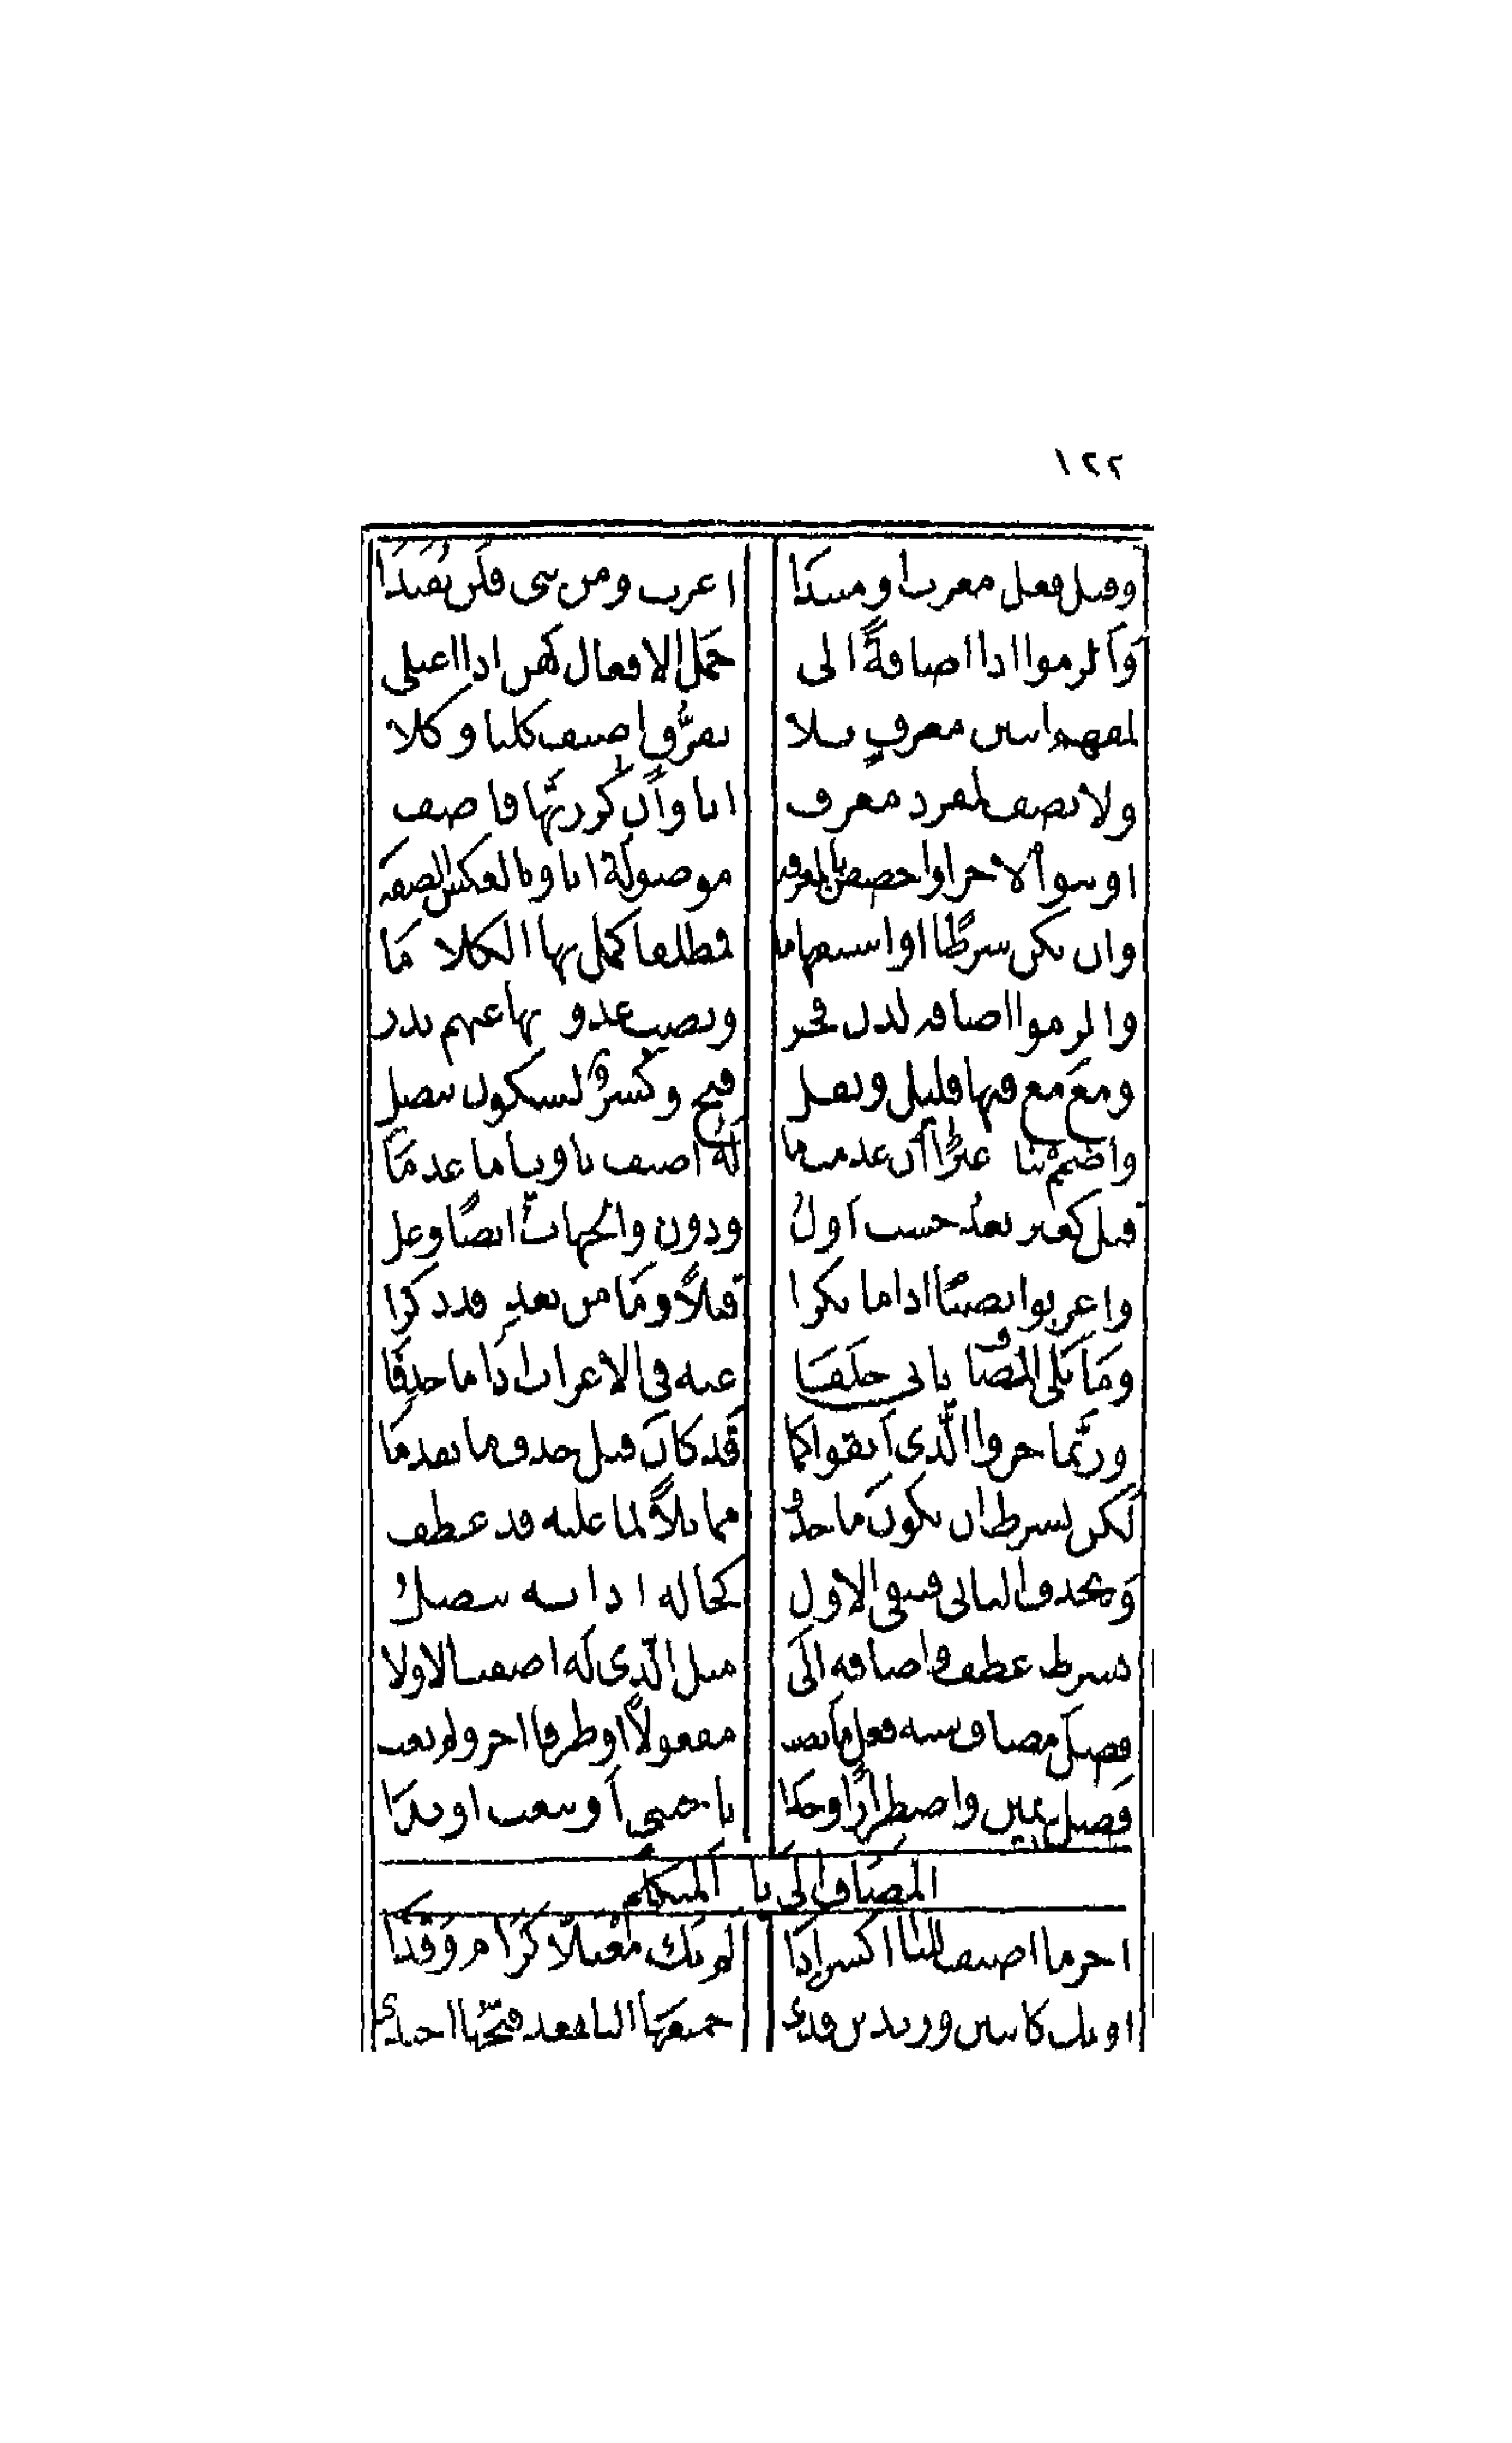 ١٢٢
وقبل فعل معرب او مبتدا اعرب ومن بنى فلن يفندا
وألزموا اذا اضافةً الى جمل الافعال كهن اذا اعتلى
لمفهم اثنين معرفٍ بلا تفرُّقٍ اضيف كلتا وكلا
ولا تضف لمفرد معرف ايا وان كررتها فاضف
او تنو الاجزا واخصصن بالمعرفه موصولة ايا وبالعكس الصفه
وان تكن شرطًا او استفهاما فطلقا كمل بها الكلاما
والزموا اضافه لدن فجر ونصب غدوة بها عنهم ندر
ومَعَ مع فيها قليل ونقل فتح وكسرٌ لسكون يتصل
واضمم بنا غيرًا ان عدمت ما لهُ اضيف ناويا ما عدما
قبل كغير بعدُ حسب اولُ ودون والجهاتُ ايضًا وعل
واعربوا نصبًا اذا ما نكرا قبلاً وما من بعدهِ قد ذكرا
وما يلى المضاف ياتى خلفا عنه فى الاعراب اذا ما حذفا
وربّما جروا الّذى ابقوا كما قد كان قبل حذف ما تقدما
لكن بشرط ان يكون ما حذف مماثلاً لما عليه قد عطف
ويحذف الثانى فيبقى الاول كحاله اذا به يتصلُ
بشرط عطف واضافه الى مثل الّذى له اضفت الاولا
فصل مضاف شبه فعل ما نصب مفعولاً او ظرفا اجز ولم يعب
فصل يمين واضطرارًا وجدا باجنبى أو بنعت او ندا
المضاف الى يا المتكلم
اخر ما اضيف لليا اكسر اذا لم يك معتلاً كرام وقذا
او يك كابنين وزيدين فذى جميعها اليا بعد فتحُها احتذى